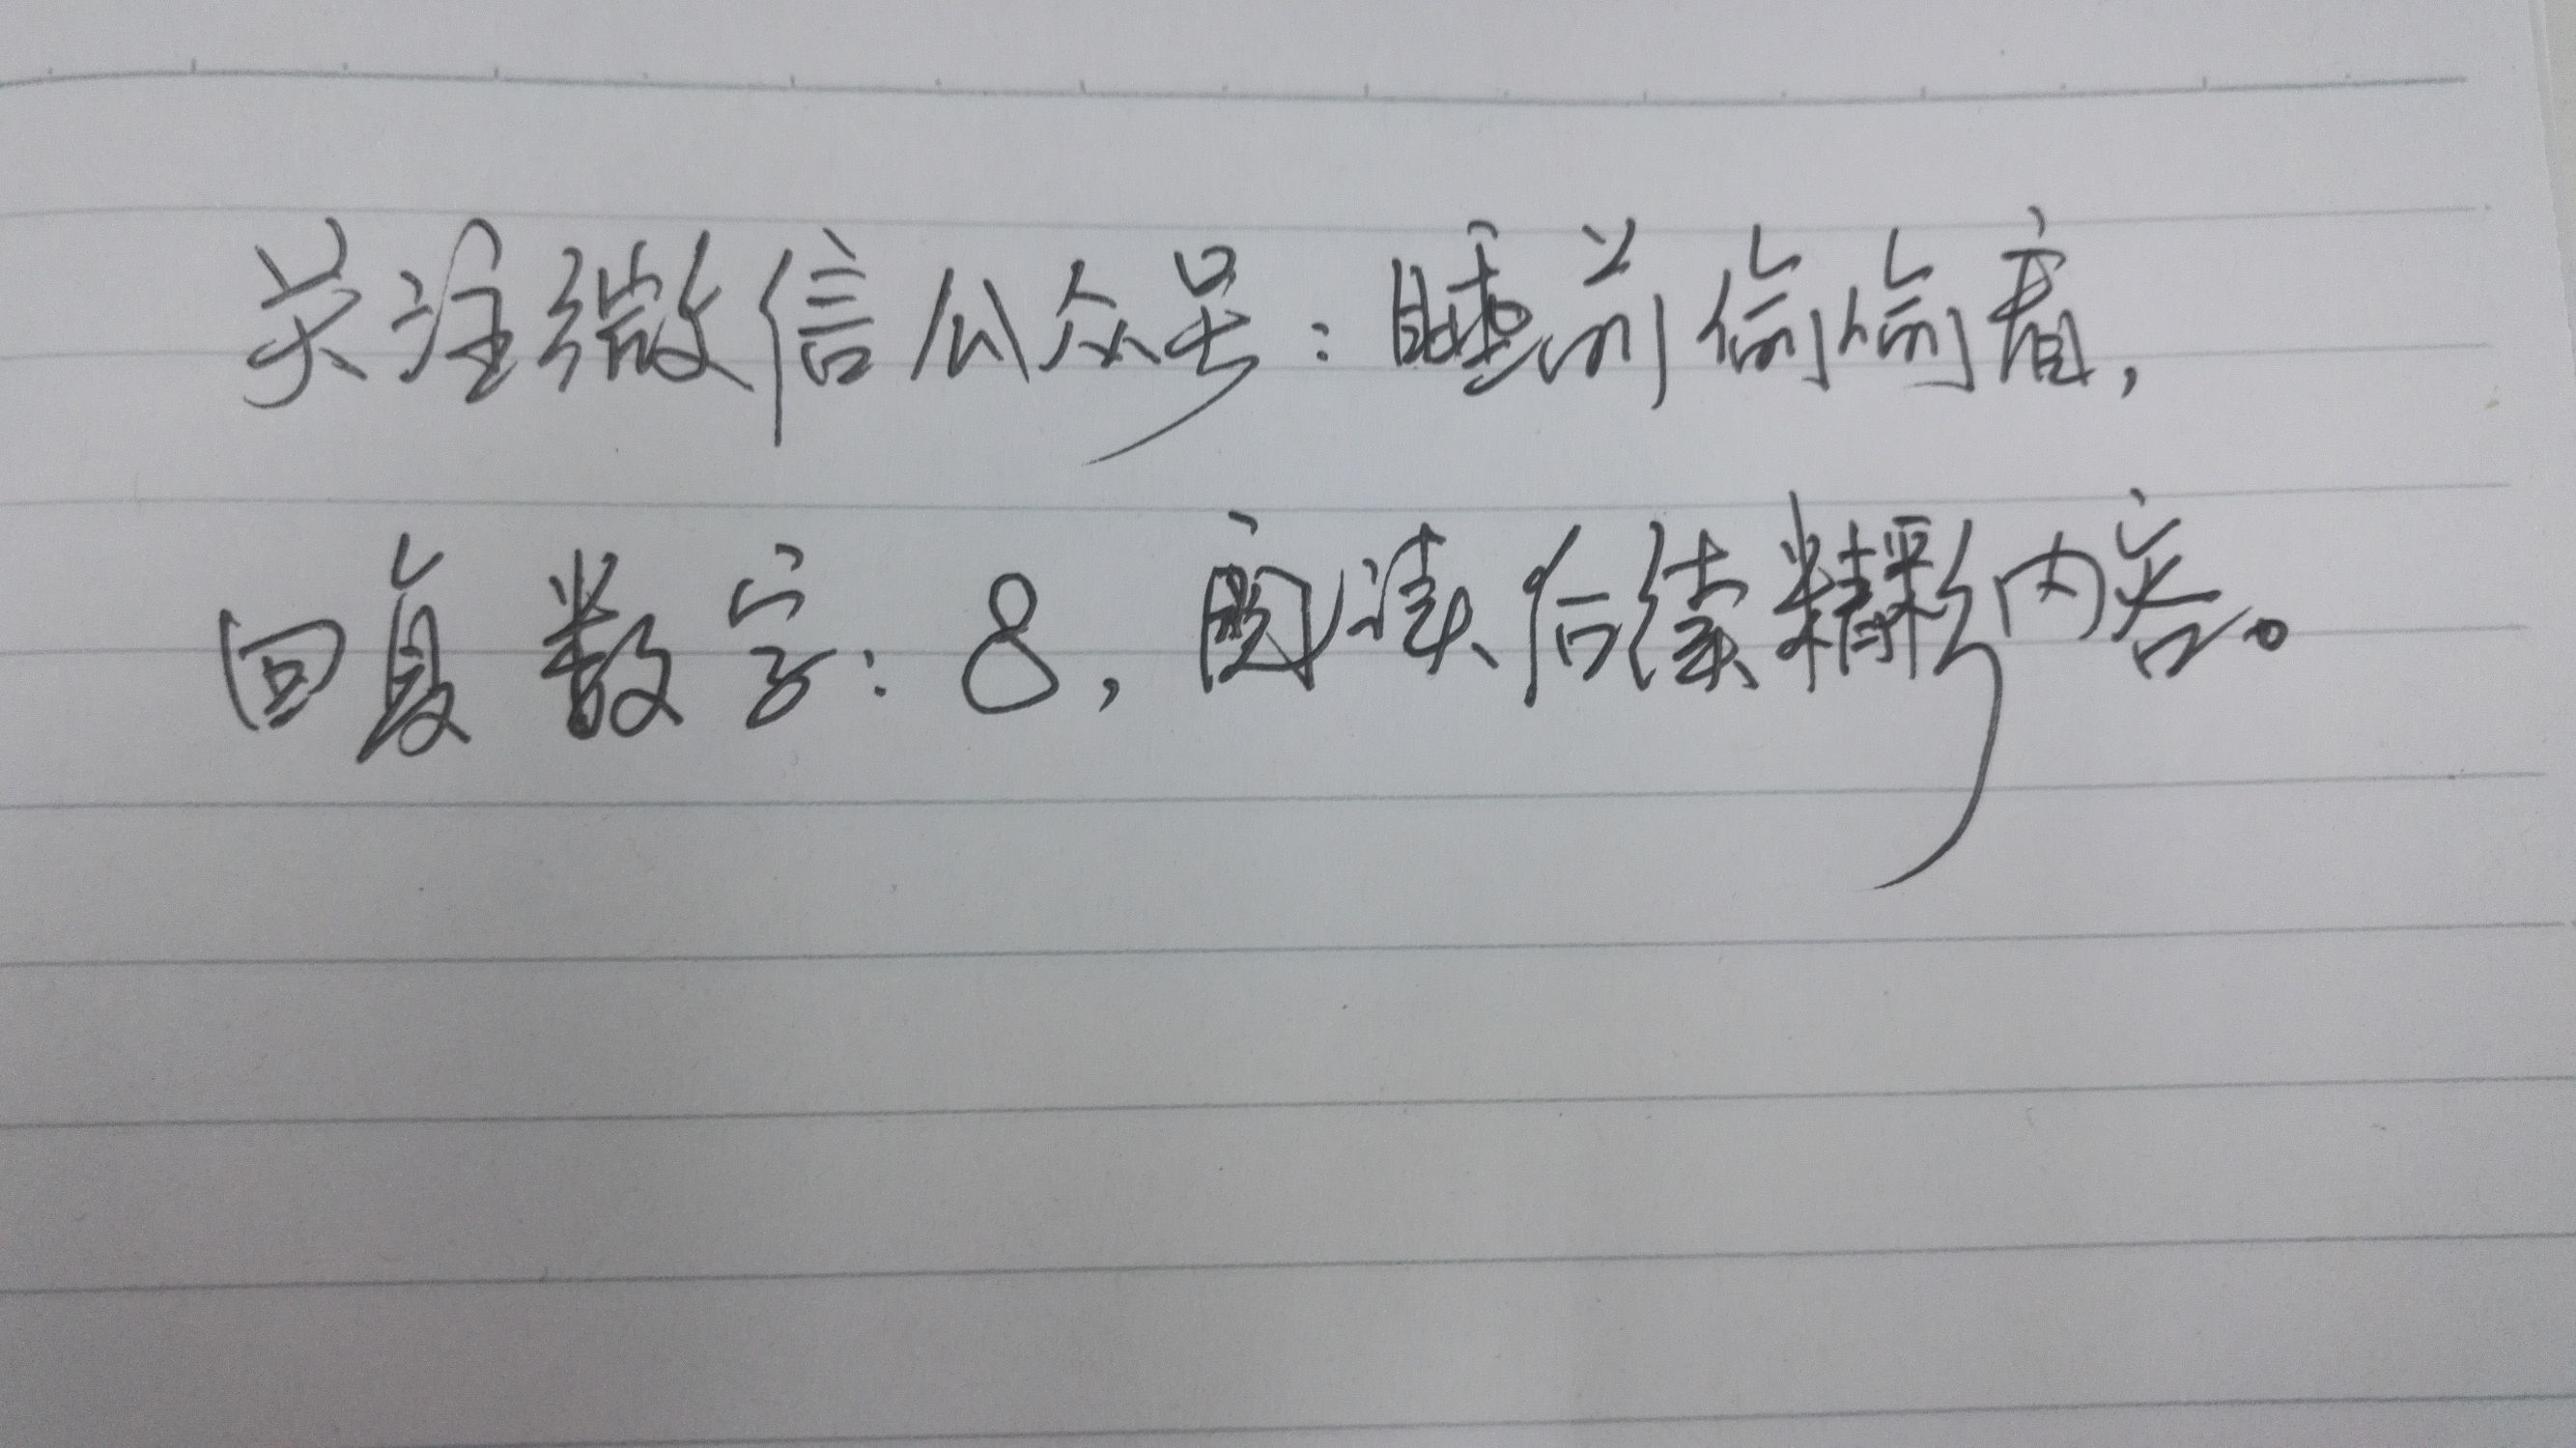 关注微信公众号：睡前偷偷看，
回复数字：8，阅读后续精彩内容。